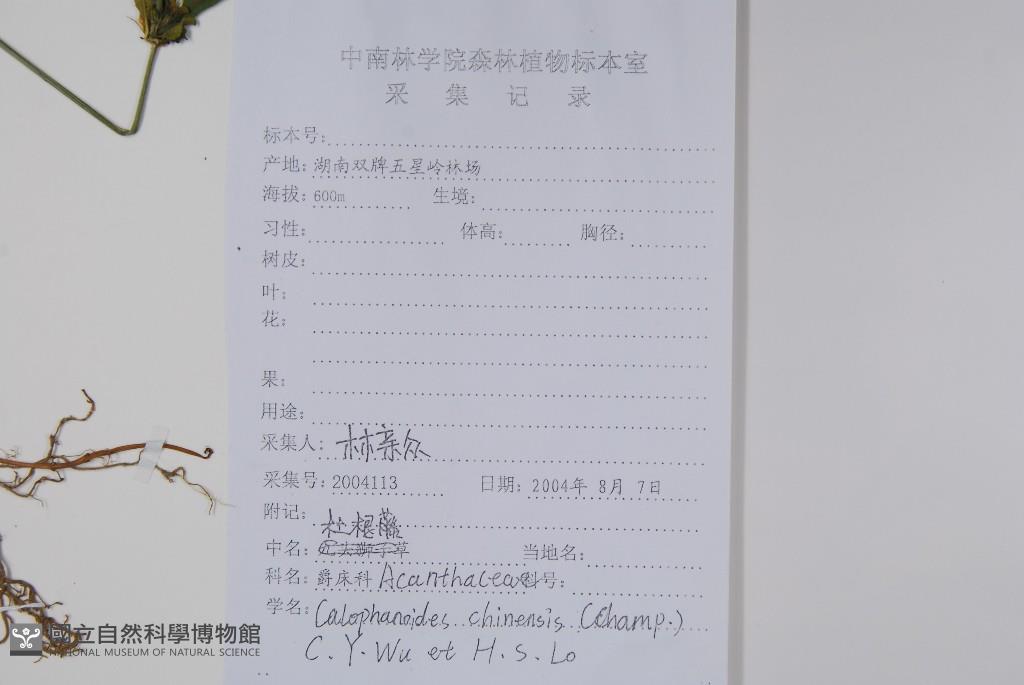 中南林学院森林植物标本室
采 集 记 录
标本号:
产地: 湖南双牌五星岭林场
海拔: 600m 生境:
习性: 体高: 胸径:
树皮:
叶:
花:
果:
用途:
采集人: 林亲众
采集号: 2004113 日期: 2004年 8月 7日
附记:
杜根藤
中名: 当地名:
科名: 爵床科 Acanthaceae 科号:
学名: Calophanoides chinensis (Champ.)
C. Y. Wu et H. S. Lo
國立自然科學博物館
NATIONAL MUSEUM OF NATURAL SCIENCE